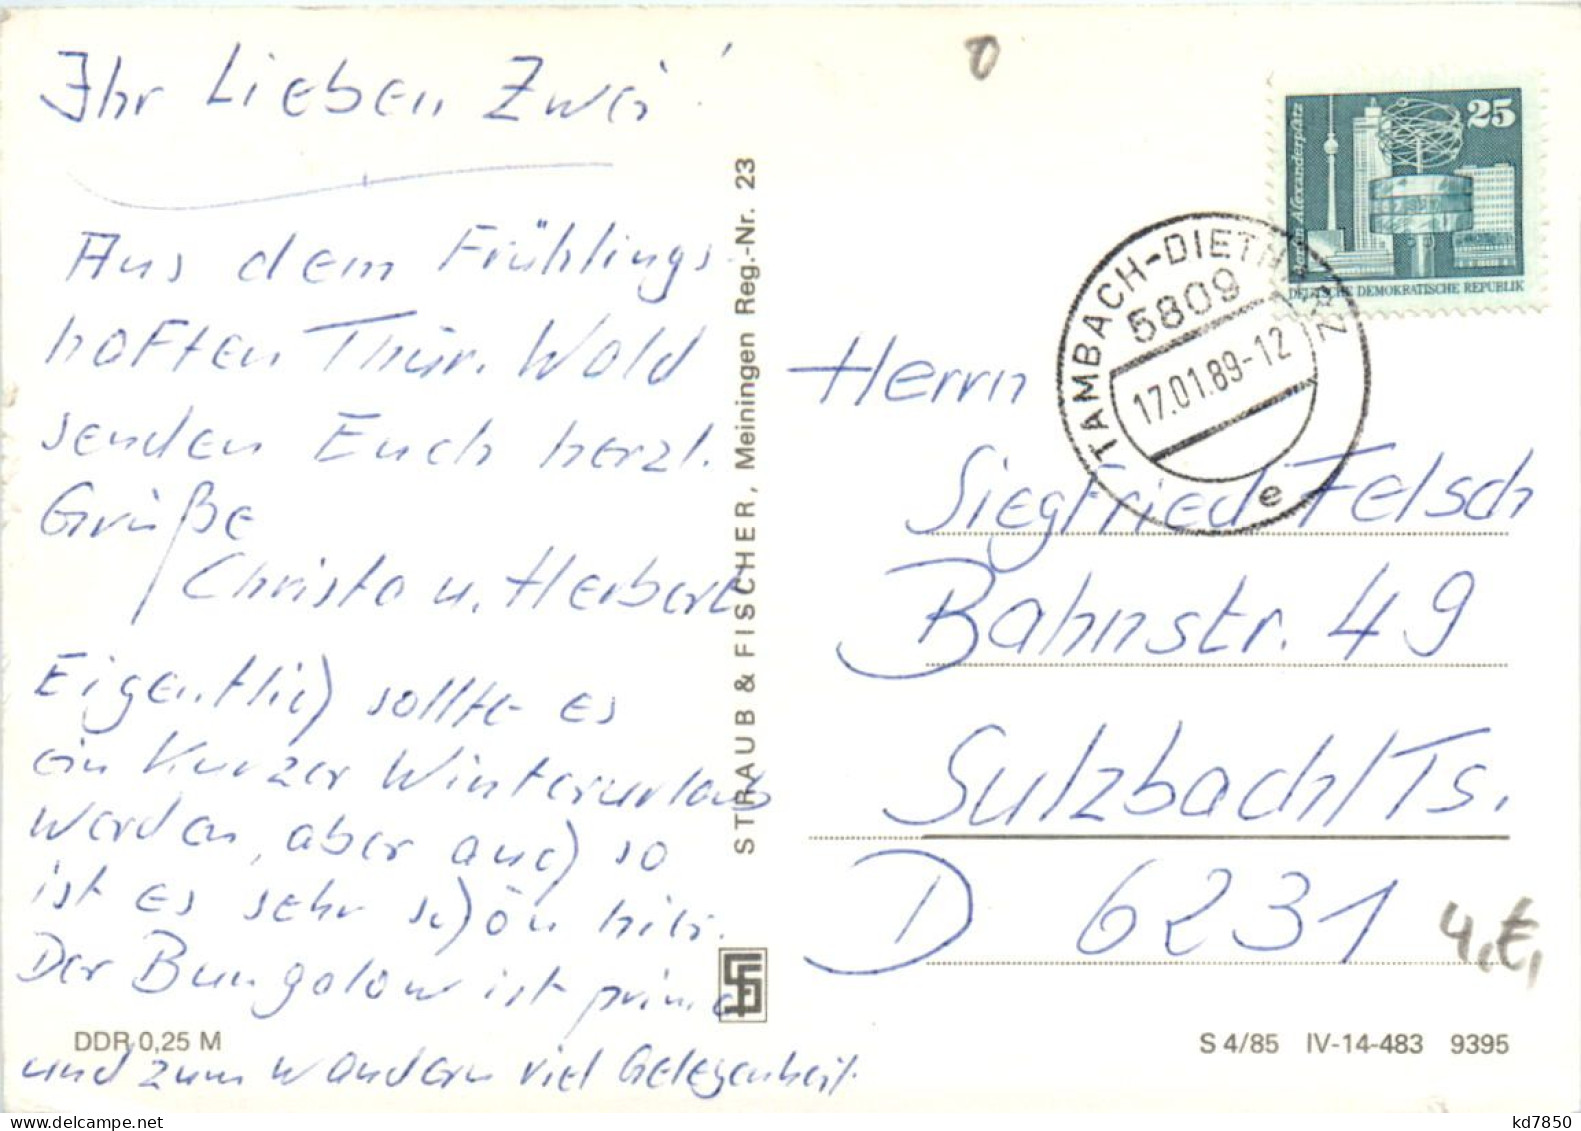 Ihr Lieben Zwei!
Aus dem Frühlings-
haften Thür. Wald
senden Euch herzl.
Grüße
Christa u. Herbert
Eigentlich sollte es
ein Kurzer Winterurlaub
werden, aber auch so
ist es sehr schön hier.
Der Bungalow ist prima
und zum Wandern viel Gelegenheit.
DDR 0,25 M
STRAUB & FISCHER, Meiningen Reg.-Nr. 23
0
25
Berlin, Alexanderplatz
DEUTSCHE DEMOKRATISCHE REPUBLIK
TAMBACH-DIETHARZ
5809
17.01.89-12
e
Herrn
Siegfried Felsch
Bahnstr. 49
Sulzbach/Ts.
D 6231
4,€,
S 4/85 IV-14-483 9395
kd7850